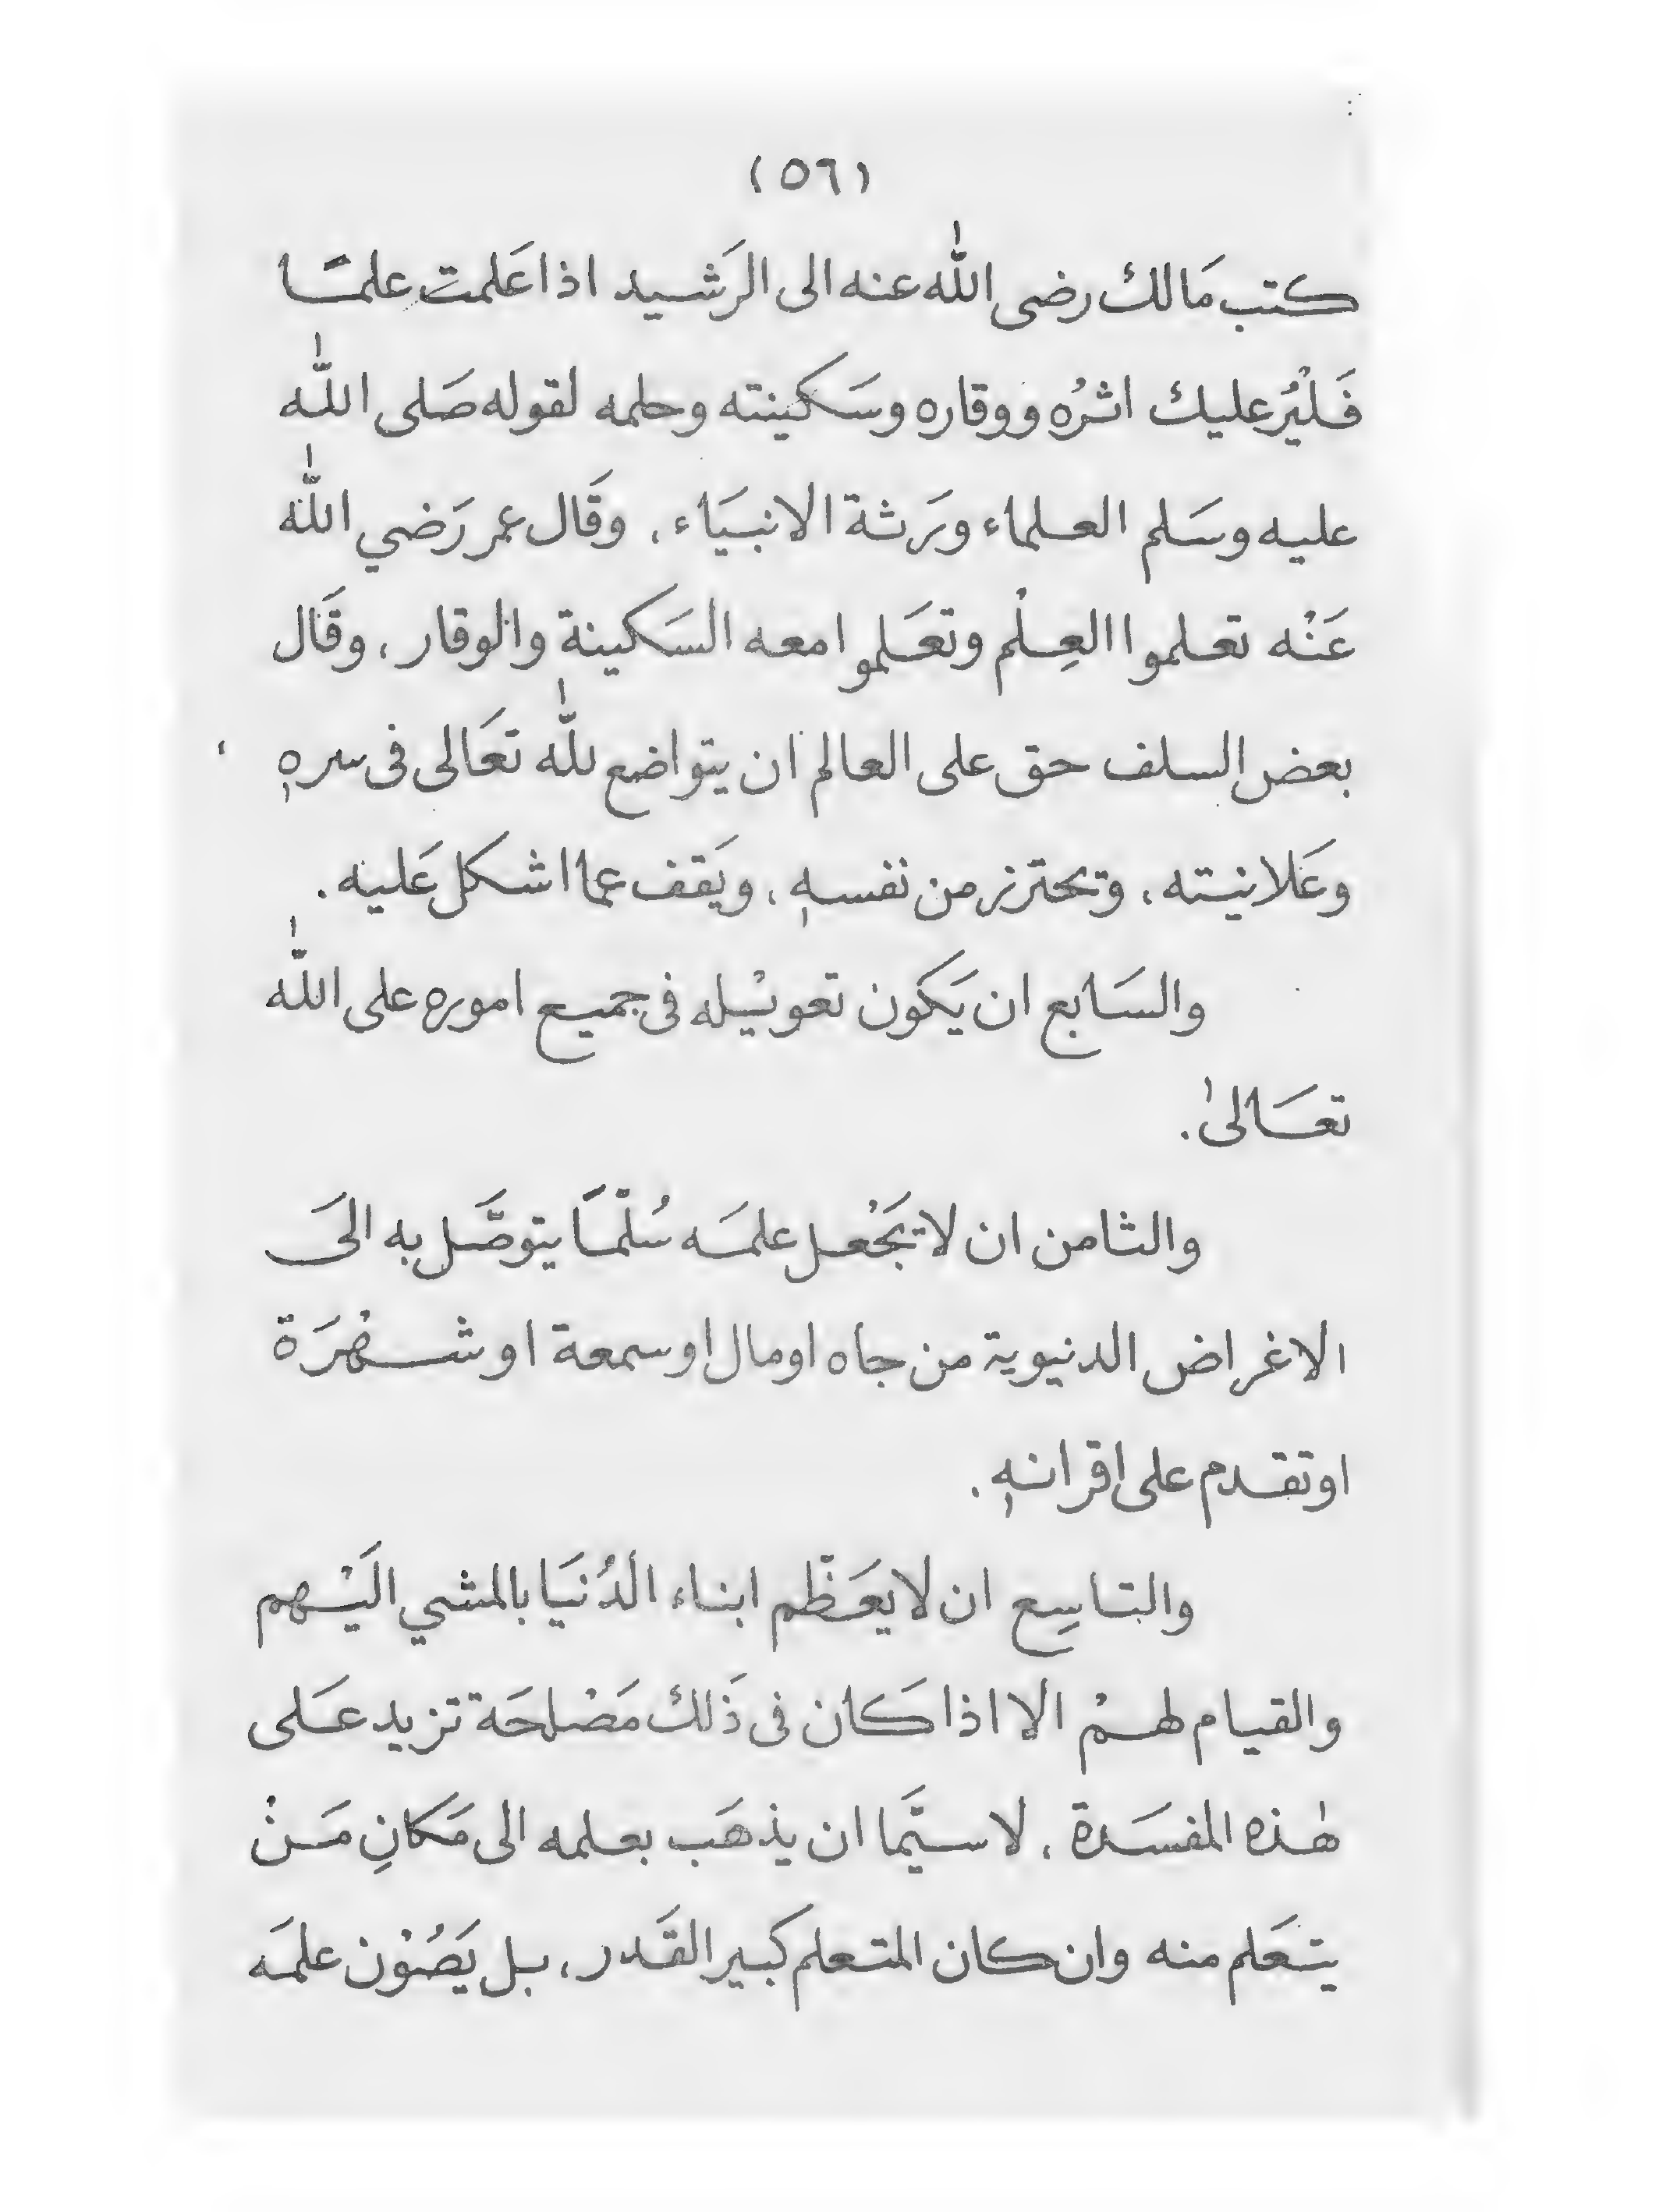 (٥٦)
كتب مَالك رضى اللّٰه عنه الى الرَشيد اذا عَلمت علمًا
فَلْيُر عليك اثرُه ووقاره وسَكينته وحلمه لقوله صَلى اللّٰه
عليه وسَلم العلماء ورَثة الانبيَاء، وقَال عمر رَضي اللّٰه
عَنْه تعلموا العِلْم وتعَلموا معه السَكينة والوقار، وقَال
بعض السلف حق على العالم ان يتواضع للّٰه تعَالى فى سرهٖ
وعَلانيته، ويحترز من نفسهٖ، ويَقف عما اشكل عَليه.
والسَابع ان يَكون تعويْله فى جميع اموره على اللّٰه
تعَالىٰ.
والثامن ان لا يَجْعل علمَه سُلّمًا يتوصَّل به الىَ
الاغراض الدنيوية من جاه او مال او سمعة او شهْرَة
او تقدم على اقرانهٖ.
والتاسِع ان لا يعَظّم ابناء الدُنيَا بالمشي اليَْهم
والقيام لهمْ الا اذا كَان فى ذَلك مَصْلحَة تزيد عَلى
هٰذه المفسَدة، لا سيَّما ان يذهَب بعلمه الى مَكانِ مَنْ
يتعَلم منه وان كان المتعلم كبير القَدر، بل يَصُوْن علمَه